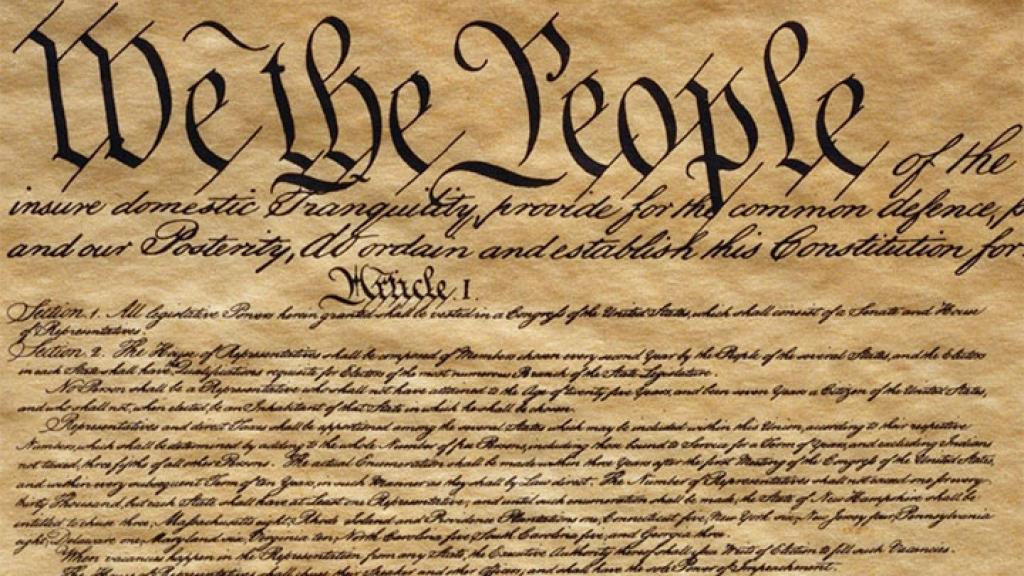 We the People of the
insure domestic Tranquility, provide for the common defence, p
and our Posterity, do ordain and establish this Constitution for
Article. I.
Section. 1. All legislative Powers herein granted shall be vested in a Congress of the United States, which shall consist of a Senate and House
of Representatives.
Section. 2. The House of Representatives shall be composed of Members chosen every second Year by the People of the several States, and the Electors
in each State shall have Qualifications requisite for Electors of the most numerous Branch of the State Legislature.
No Person shall be a Representative who shall not have attained to the Age of twenty five Years, and been seven Years a Citizen of the United States,
and who shall not, when elected, be an Inhabitant of that State in which he shall be chosen.
Representatives and direct Taxes shall be apportioned among the several States which may be included within this Union, according to their respective
Numbers, which shall be determined by adding to the whole Number of free Persons, including those bound to Service for a Term of Years, and excluding Indians
not taxed, three fifths of all other Persons. The actual Enumeration shall be made within three Years after the first Meeting of the Congress of the United States,
and within every subsequent Term of ten Years, in such Manner as they shall by Law direct. The Number of Representatives shall not exceed one for every
thirty Thousand, but each State shall have at Least one Representative; and until such enumeration shall be made, the State of New Hampshire shall be
entitled to chuse three, Massachusetts eight, Rhode Island and Providence Plantations one, Connecticut five, New York six, New Jersey four, Pennsylvania
eight, Delaware one, Maryland six, Virginia ten, North Carolina five, South Carolina five, and Georgia three.
When vacancies happen in the Representation from any State, the Executive Authority thereof shall issue Writs of Election to fill such Vacancies.
The House of Representatives shall chuse their Speaker and other Officers; and shall have the sole Power of Impeachment.